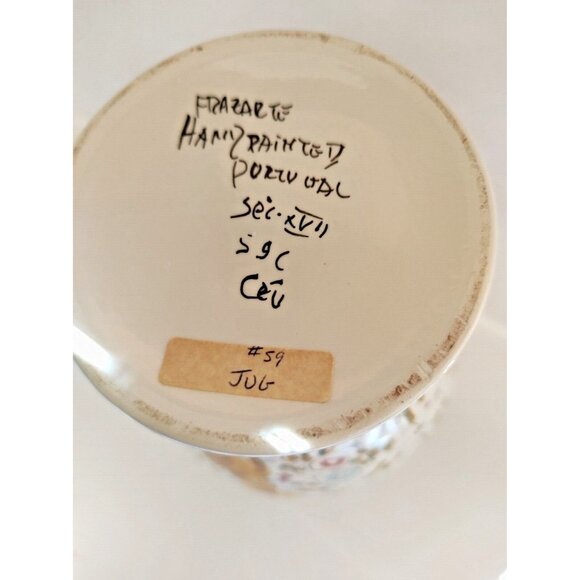 FRAZARTE
HANDPAINTED
PORTUGAL
Séc. XVII
59C
#59
JUG